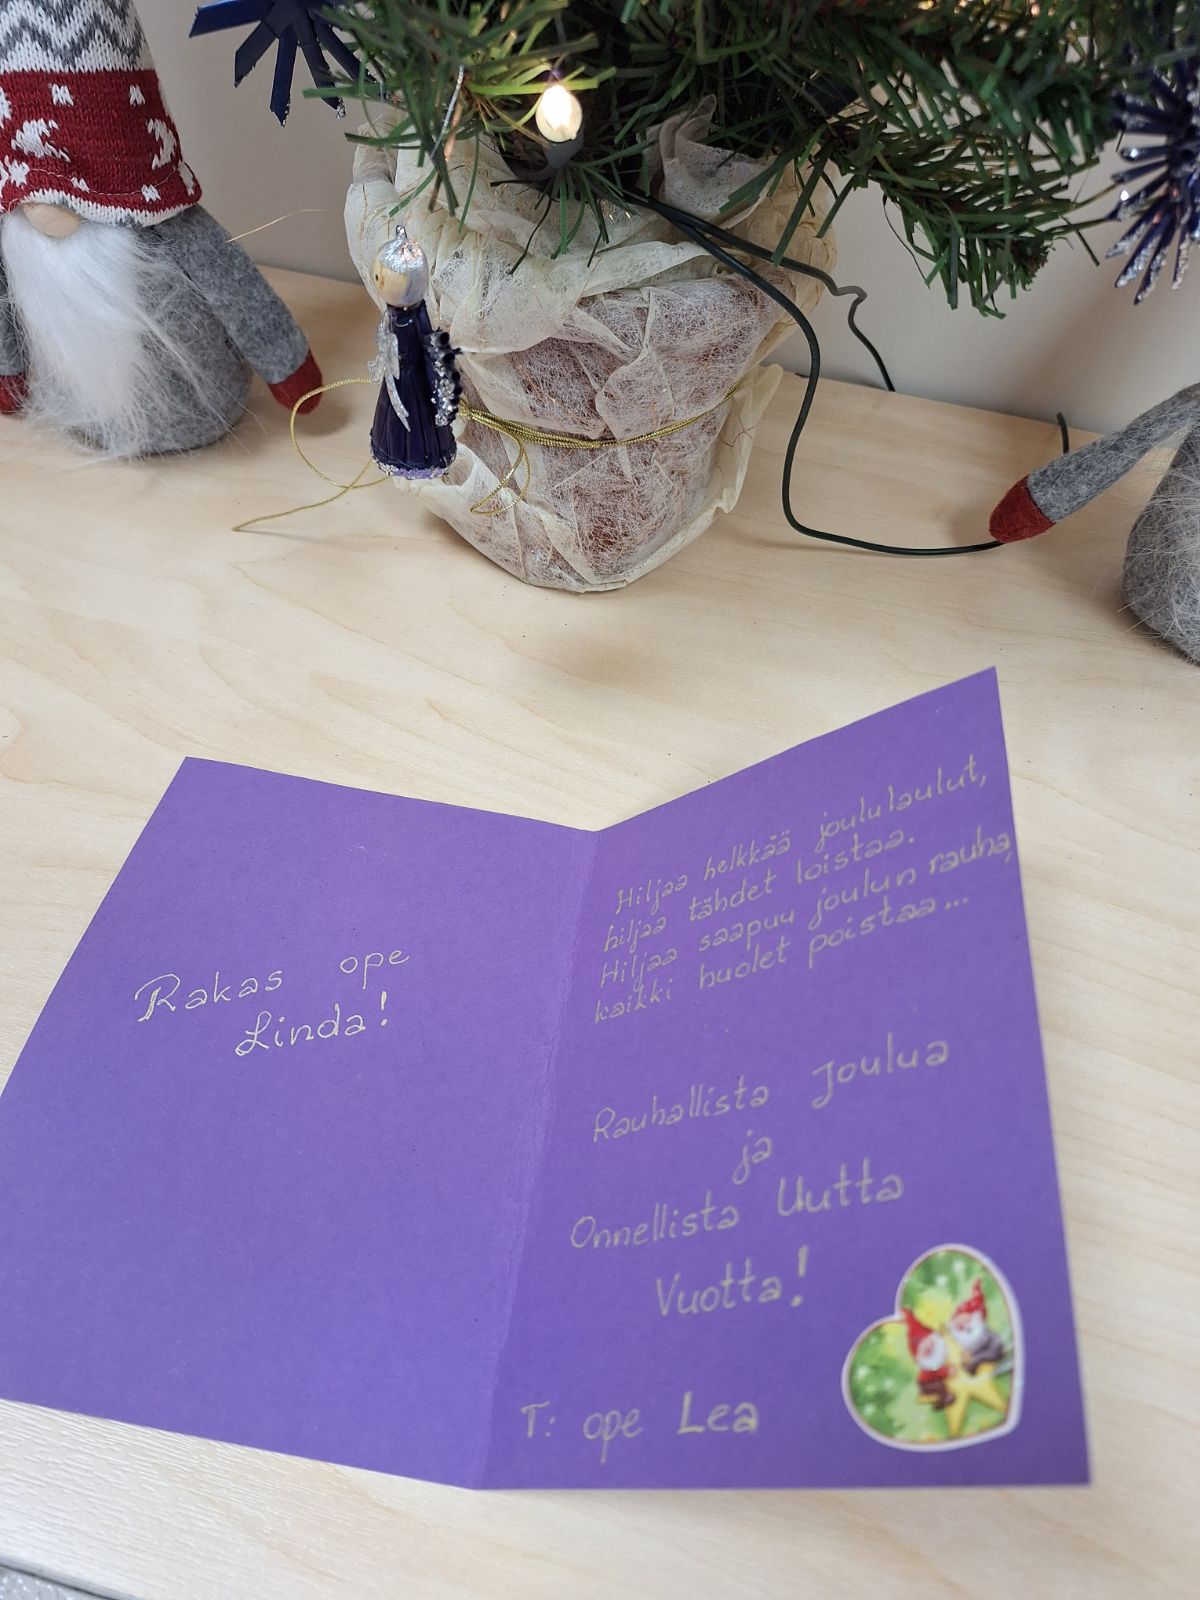 Rakas ope
Linda!
Hiljaa helkkää joululaulut,
hiljaa tähdet loistaa.
Hiljaa saapuu joulun rauha,
kaikki huolet poistaa...
Rauhallista Joulua
ja
Onnellista Uutta
Vuotta!
T: ope Lea